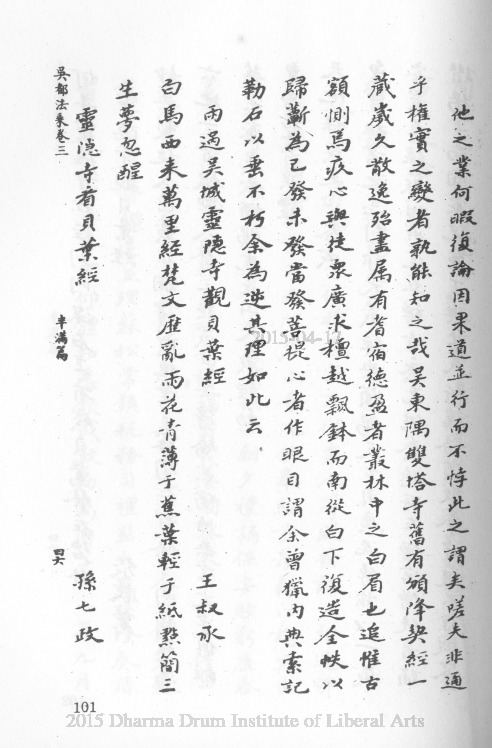 他之業何暇復論因果道並行而不悖此之謂矣嗟夫非通
乎權實之變者孰能知之哉吳東隅雙塔寺舊有頒降契經一
藏歲久散逸殆盡屬有耆宿德盈者叢林中之白眉也追惟古
額惻焉疚心與徒眾廣求檀越飄鉢而南從白下復造全帙以
歸蘄為已發未發當發菩提心者作眼目謂余曾獵內典索記
勒石以垂不朽余為述其理如此云
雨過吳城靈隱寺觀貝葉經 王叔承
白馬西來萬里經梵文歷亂雨花青薄于蕉葉輕于紙點簡三
生夢忽醒
靈隱寺看貝葉經 孫七政
吳都法乘卷三 半滿篇
101
2015-04-1
2015 Dharma Drum Institute of Liberal Arts